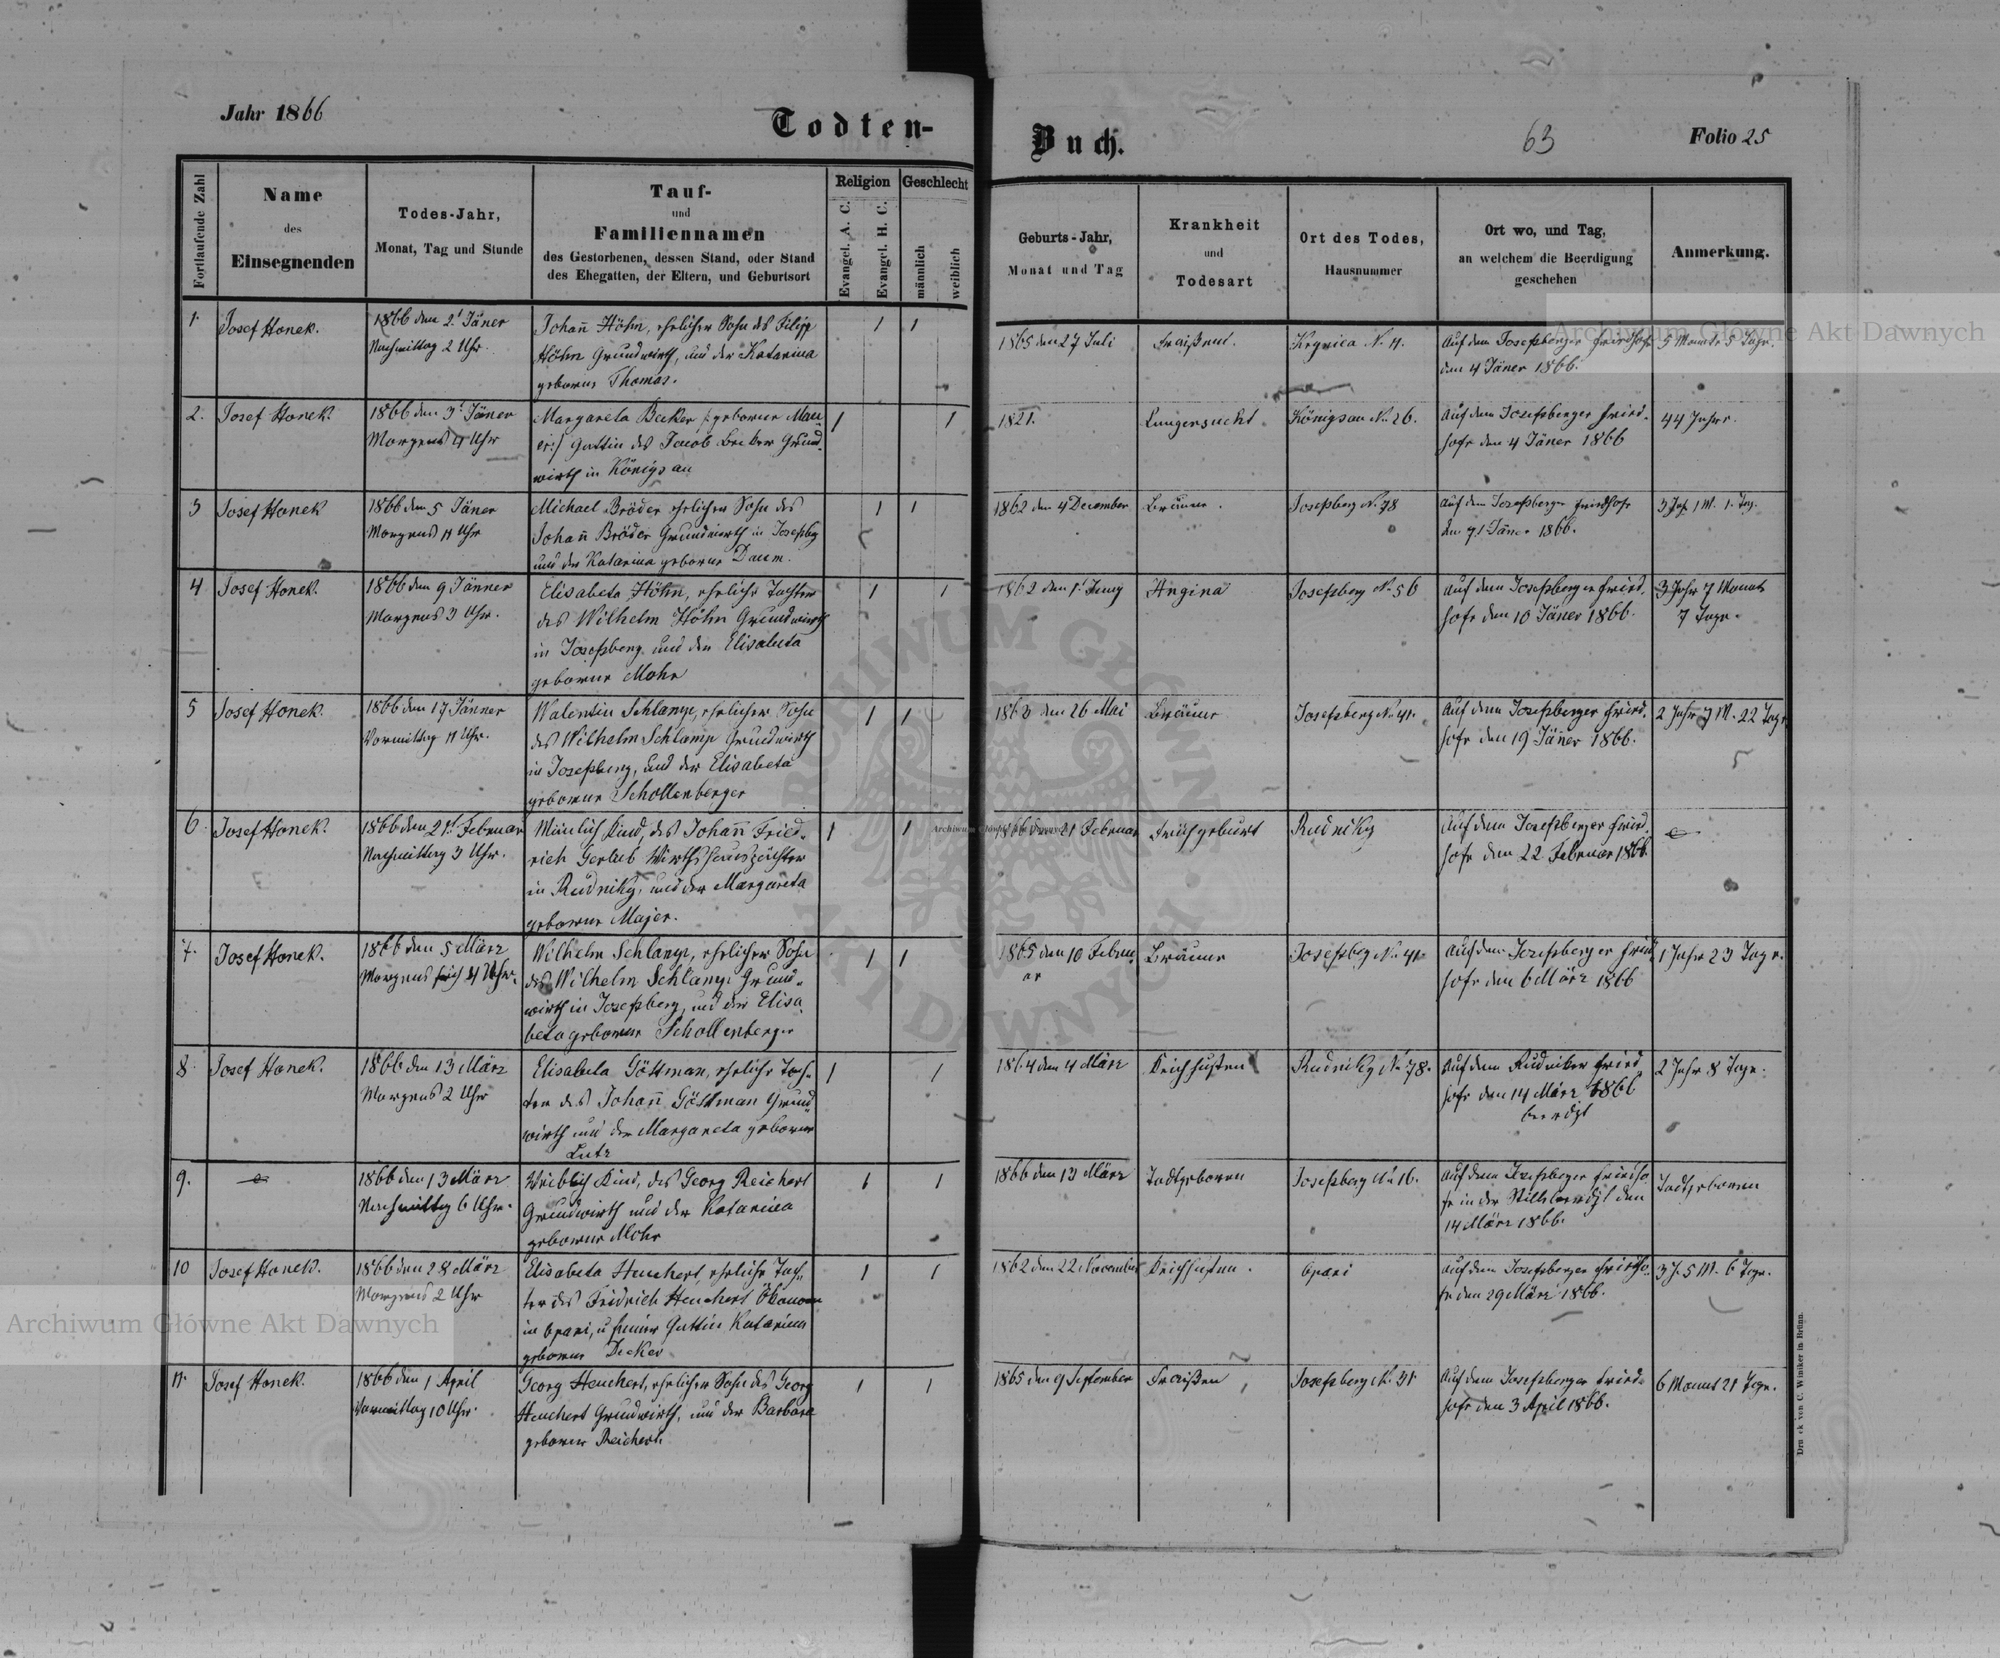 Jahr 1866
Todten-
Buch.
63
Folio 25
Fortlaufende Zahl
Name
des
Einsegnenden
Todes-Jahr,
Monat, Tag und Stunde
Tauf-
und
Familiennamen
des Gestorbenen, dessen Stand, oder Stand
des Ehegatten, der Eltern, und Geburtsort
Religion
Evangel. A. C.
Evangel. H. C.
Geschlecht
männlich
weiblich
Geburts-Jahr,
Monat und Tag
Krankheit
und
Todesart
Ort des Todes,
Hausnummer
Ort wo, und Tag,
an welchem die Beerdigung
geschehen
Anmerkung.
1.
Josef Honek.
1866 den 2t Jäner
Nachmittag 2 Uhr.
Johañ Höhn, ehelicher Sohn des Filipp
Höhn Grundwirth, und der Katarina
geborne Thomas.
1 1
1865 den 27 Juli
Fraißen
Krynica N. 11.
Auf dem Josefsberger Friedhofe
den 4 Jäner 1866.
5 Monate 5 Tage.
2.
Josef Honek.
1866 den 3t Jäner
Morgens 4 Uhr
Margareta Becker /: geborne Mau
er:/ Gattin des Jacob Becker Grund
wirth in Königsau
1 1
1821.
Lungensucht
Königsau No. 26.
Auf dem Josefsberger Fried-
hofe den 4 Jäner 1866
44 Jahre.
3
Josef Honek
1866 den 5 Jäner
Morgens 11 Uhr
Michael Bröder ehelicher Sohn des
Johañ Bröder Grundwirth in Josefsbg
und der Katarina geborne Daum.
1 1
1862 den 4 December
Bräune.
Josefsberg No. 78
Auf dem Josefsberger Friedhofe
den 7t Jäner 1866.
3 Jah. 1 M. 1. Tag.
4
Josef Honek.
1866 den 9 Jänner
Morgens 3 Uhr.
Elisabeta Höhn, eheliche Tochter
des Wilhelm Höhn Grundwirth
in Josefsberg und der Elisabeta
geborne Mohr
1 1
1862 den 1t Juny
Angina
Josefsberg No 56
Auf dem Josefsberger Fried,
hofe den 10 Jäner 1866.
3 Jahr 7 Monate
7 Tage.
5
Josef Honek.
1866 den 17 Jänner
Vormittag 11 Uhr.
Walentin Schlamp, ehelicher Sohn
des Wilhelm Schlamp Grundwirth
in Josefsberg, und der Elisabeta
geborne Schollenberger
1 1
1863 den 26 Mai
Bräune
Josefsberg No. 41.
Auf dem Josefsberger Fried,
hofe den 19 Jäner 1866.
2 Jahr 7 M. 22 Tage
6.
Josef Honek.
1866 den 21t Februar
Nachmittag 3 Uhr.
Mänlich Kind, des Johañ Fried-
rich Gerlub Wirthshauspächter
in Rudniky, und der Margareta
geborne Majer.
1 1
1866 den 21 Februar
Früh geburt
Rudniky
Auf dem Josefsberger Fried,
hofe den 22 Februar 1866.
7.
Josef Honek.
1866 den 5 März
Morgens 4 Uhr.
Wilhelm Schlamp, ehelicher Sohn
des Wilhelm Schlamp Grund-
wirth in Josefsberg, und der Elisa
beta geborne Schollenberger
1 1
1865 den 10 Febru
ar
Bräune
Josefsbeg No. 41
Auf dem Josefsberger Fried
hofe den 6 März 1866
1 Jahr 23 Tage.
8.
Josef Honek.
1866 den 13 März
Morgens 2 Uhr
Elisabeta Göttman, eheliche Toch-
ter des Johañ Göttman Grund
wirth und der Margareta geborne
Lutz
1 1
1864 den 4 März
Keichhusten
Rudniky No 78.
Auf dem Rudniker Fried
hofe den 14 März 1866
beerdgt
2 Jahr 8 Tage.
9.
1866 den 13 März
Nachmittag 6 Uhr.
Weiblich Kind, des Georg Reichert
Grundwirth und der Katarina
geborne Mohr
1 1
1866 den 13 März
Todtgeboren
Josefsberg No 16.
Auf dem Josefsberger Friedho
fe in der Stille beerdgt den
14 März 1866.
Todtgeboren
10
Josef Honek.
1866 den 28 März
Morgens 2 Uhr
Elisabeta Heuchert, eheliche Toch-
ter des Fridrich Heuchert Ökonom
in Opari, u seiner Gattin Katarina
geborne Decker
1 1
1862 den 22 November
Keichhusten.
Opari
Auf dem Josefsberger Friedho-
fe den 29 März 1866.
3 J. 5 M. 6 Tage.
11.
Josef Honek.
1866 den 1 April
Vormittag 10 Uhr.
Georg Heuchert, ehelicher Sohn des Georg
Heuchert Grundwirth, und der Barbara
geborne Reichert.
1 1
1865 den 9 September
Fraißen
Josefsberg No. 31.
Auf dem Josefsberger Fried-
hofe den 3 April 1866.
6 Monat 21 Tage.
Druck von C. Winiker in Brünn.
Archiwum Główne Akt Dawnych
Archiwum Główne Akt Dawnych
Archiwum Główne Akt Dawnych
ARCHIWUM GŁÓWNE AKT DAWNYCH